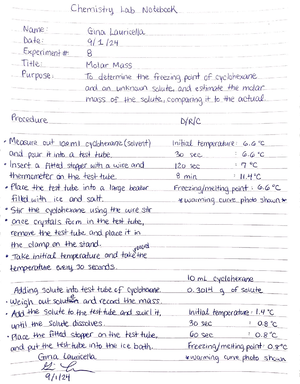 Chemistry Lab Notebook
Name: Gina Lauricella
Date: 9/1/24
Experiment #: 8
Title: Molar Mass
Purpose: To determine the freezing point of cyclohexane
and an unknown solute, and estimate the molar
mass of the solute, comparing it to the actual.
Procedure D/R/C
• Measure out 10.0ml cyclohexane (solvent) Initial temperature: 6.6°C
and pour it into a test tube. 30 sec : 6.6°C
• Insert a fitted stopper with a wire and 120 sec : 7°C
thermometer on the test tube. 8 min : 11.4°C
• Place the test tube into a large beaker Freezing/melting point: 6.6°C
filled with ice and salt. *warming curve photo shown*
• Stir the cyclohexane using the wire stir
• Once crystals form in the test tube,
remove the test tube and place it in
the clamp on the stand.
• Take initial temperature and take the
temperature every 30 seconds.
10 mL cyclohexane
Adding solute into test tube of cyclohexane. g of solute
• Weigh out solute and record the mass.
• Add the solute to the test tube and swirl it, Initial temperature: 1.4°C
until the solute dissolves. 30 sec : 0.8°C
• Place the fitted stopper on the test tube, 60 sec : 0.8°C
and put the test tube into the ice bath. Freezing/melting point: 0.8°C
Gina Lauricella *warming curve photo shown
9/1/24